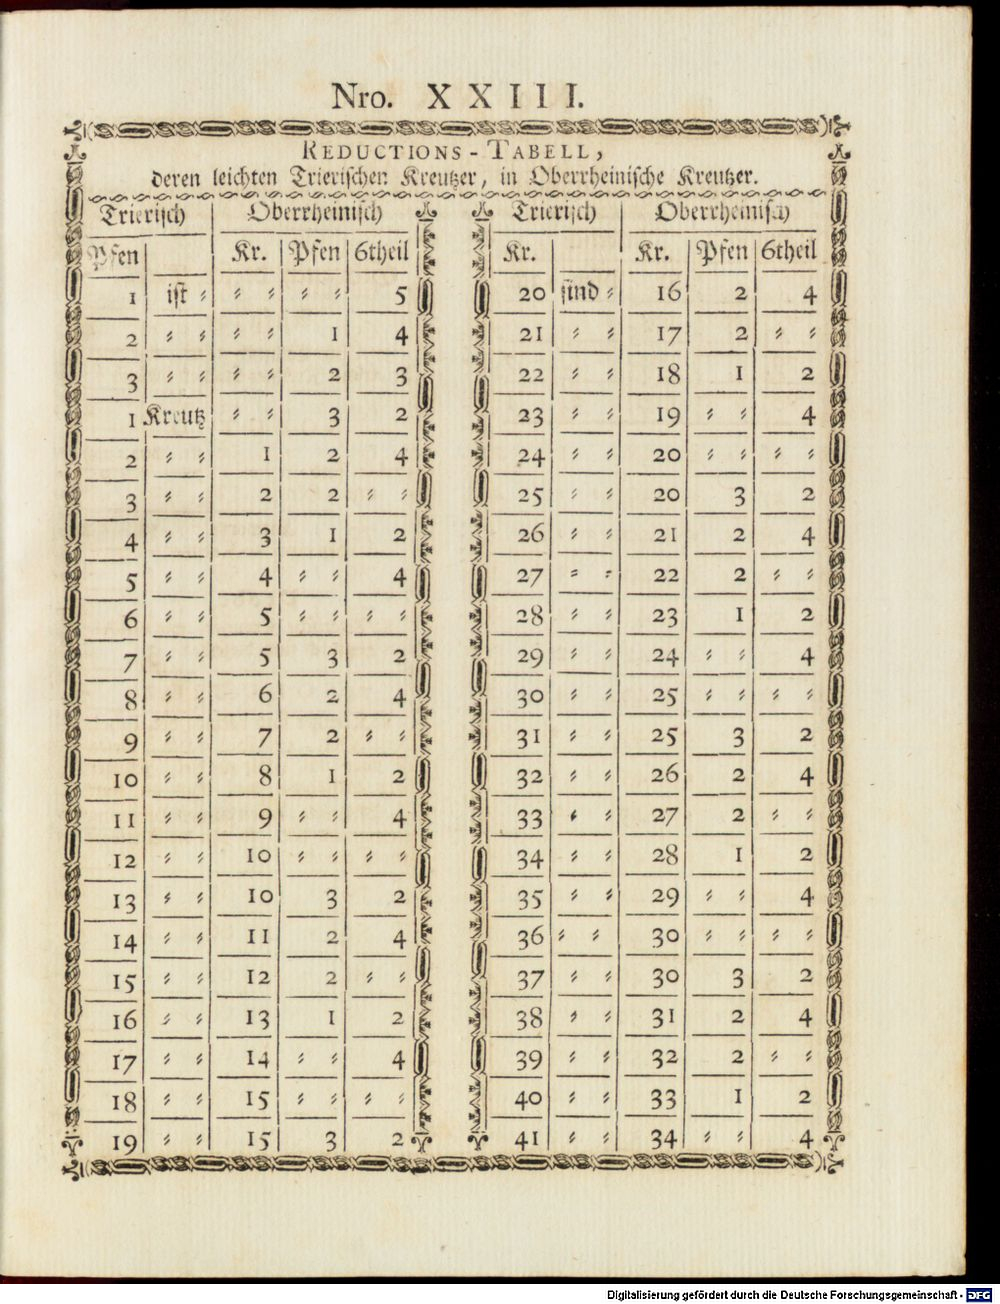 Nro. XXIII.
REDUCTIONS-TABELL,
deren leichten Trierischen Kreutzer, in Oberrheinische Kreutzer.
Trierisch | Oberrheinisch
Pfen | | Kr. | Pfen | 6theil
1 | ist〃 | 〃 〃 | 〃 〃 | 5
2 | 〃 〃 | 〃 〃 | 1 | 4
3 | 〃 〃 | 〃 〃 | 2 | 3
1 | Kreutz | 〃 〃 | 3 | 2
2 | 〃 〃 | 1 | 2 | 4
3 | 〃 〃 | 2 | 2 | 〃 〃
4 | 〃 〃 | 3 | 1 | 2
5 | 〃 〃 | 4 | 〃 〃 | 4
6 | 〃 〃 | 5 | 〃 〃 | 〃 〃
7 | 〃 〃 | 5 | 3 | 2
8 | 〃 〃 | 6 | 2 | 4
9 | 〃 〃 | 7 | 2 | 〃 〃
10 | 〃 〃 | 8 | 1 | 2
11 | 〃 〃 | 9 | 〃 〃 | 4
12 | 〃 〃 | 10 | 〃 〃 | 〃 〃
13 | 〃 〃 | 10 | 3 | 2
14 | 〃 〃 | 11 | 2 | 4
15 | 〃 〃 | 12 | 2 | 〃 〃
16 | 〃 〃 | 13 | 1 | 2
17 | 〃 〃 | 14 | 〃 〃 | 4
18 | 〃 〃 | 15 | 〃 〃 | 〃 〃
19 | 〃 〃 | 15 | 3 | 2
Trierisch | Oberrheinisch
Kr. | | Kr. | Pfen | 6theil
20 | sind〃 | 16 | 2 | 4
21 | 〃 〃 | 17 | 2 | 〃 〃
22 | 〃 〃 | 18 | 1 | 2
23 | 〃 〃 | 19 | 〃 〃 | 4
24 | 〃 〃 | 20 | 〃 〃 | 〃 〃
25 | 〃 〃 | 20 | 3 | 2
26 | 〃 〃 | 21 | 2 | 4
27 | 〃 〃 | 22 | 2 | 〃 〃
28 | 〃 〃 | 23 | 1 | 2
29 | 〃 〃 | 24 | 〃 〃 | 4
30 | 〃 〃 | 25 | 〃 〃 | 〃 〃
31 | 〃 〃 | 25 | 3 | 2
32 | 〃 〃 | 26 | 2 | 4
33 | 〃 〃 | 27 | 2 | 〃 〃
34 | 〃 〃 | 28 | 1 | 2
35 | 〃 〃 | 29 | 〃 〃 | 4
36 | 〃 〃 | 30 | 〃 〃 | 〃 〃
37 | 〃 〃 | 30 | 3 | 2
38 | 〃 〃 | 31 | 2 | 4
39 | 〃 〃 | 32 | 2 | 〃 〃
40 | 〃 〃 | 33 | 1 | 2
41 | 〃 〃 | 34 | 〃 〃 | 4
Digitalisierung gefördert durch die Deutsche Forschungsgemeinschaft - DFG